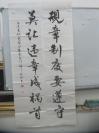 规章制度要遵守
莫让违章成祸首